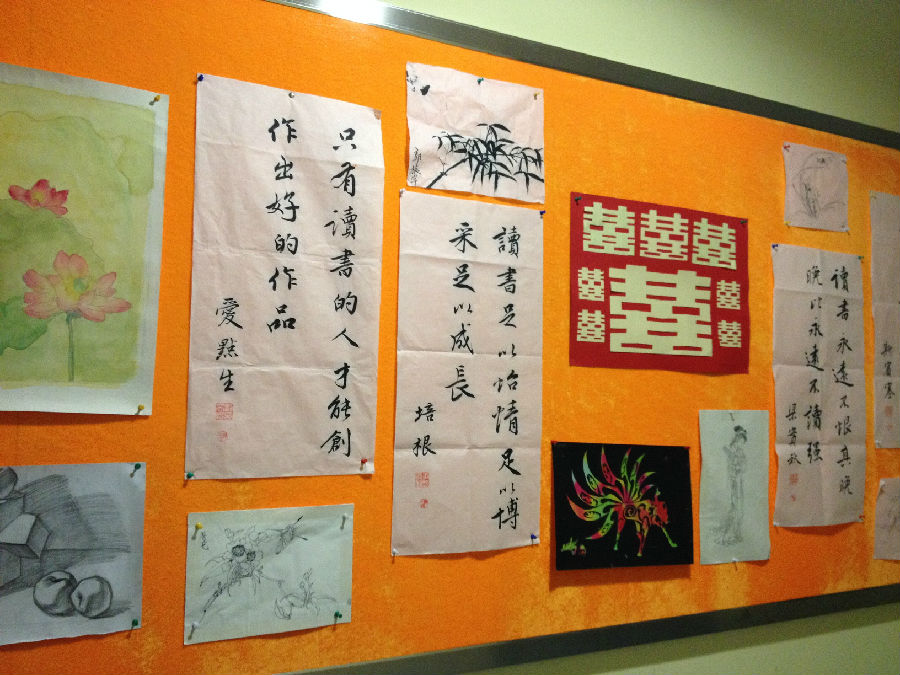 只有讀書的人才能創
作出好的作品
愛默生
讀書足以怡情足以博
采足以成長
培根
囍囍囍
囍囍囍
囍囍
讀書永遠不恨其晚
晚比永遠不讀强
梁實秋